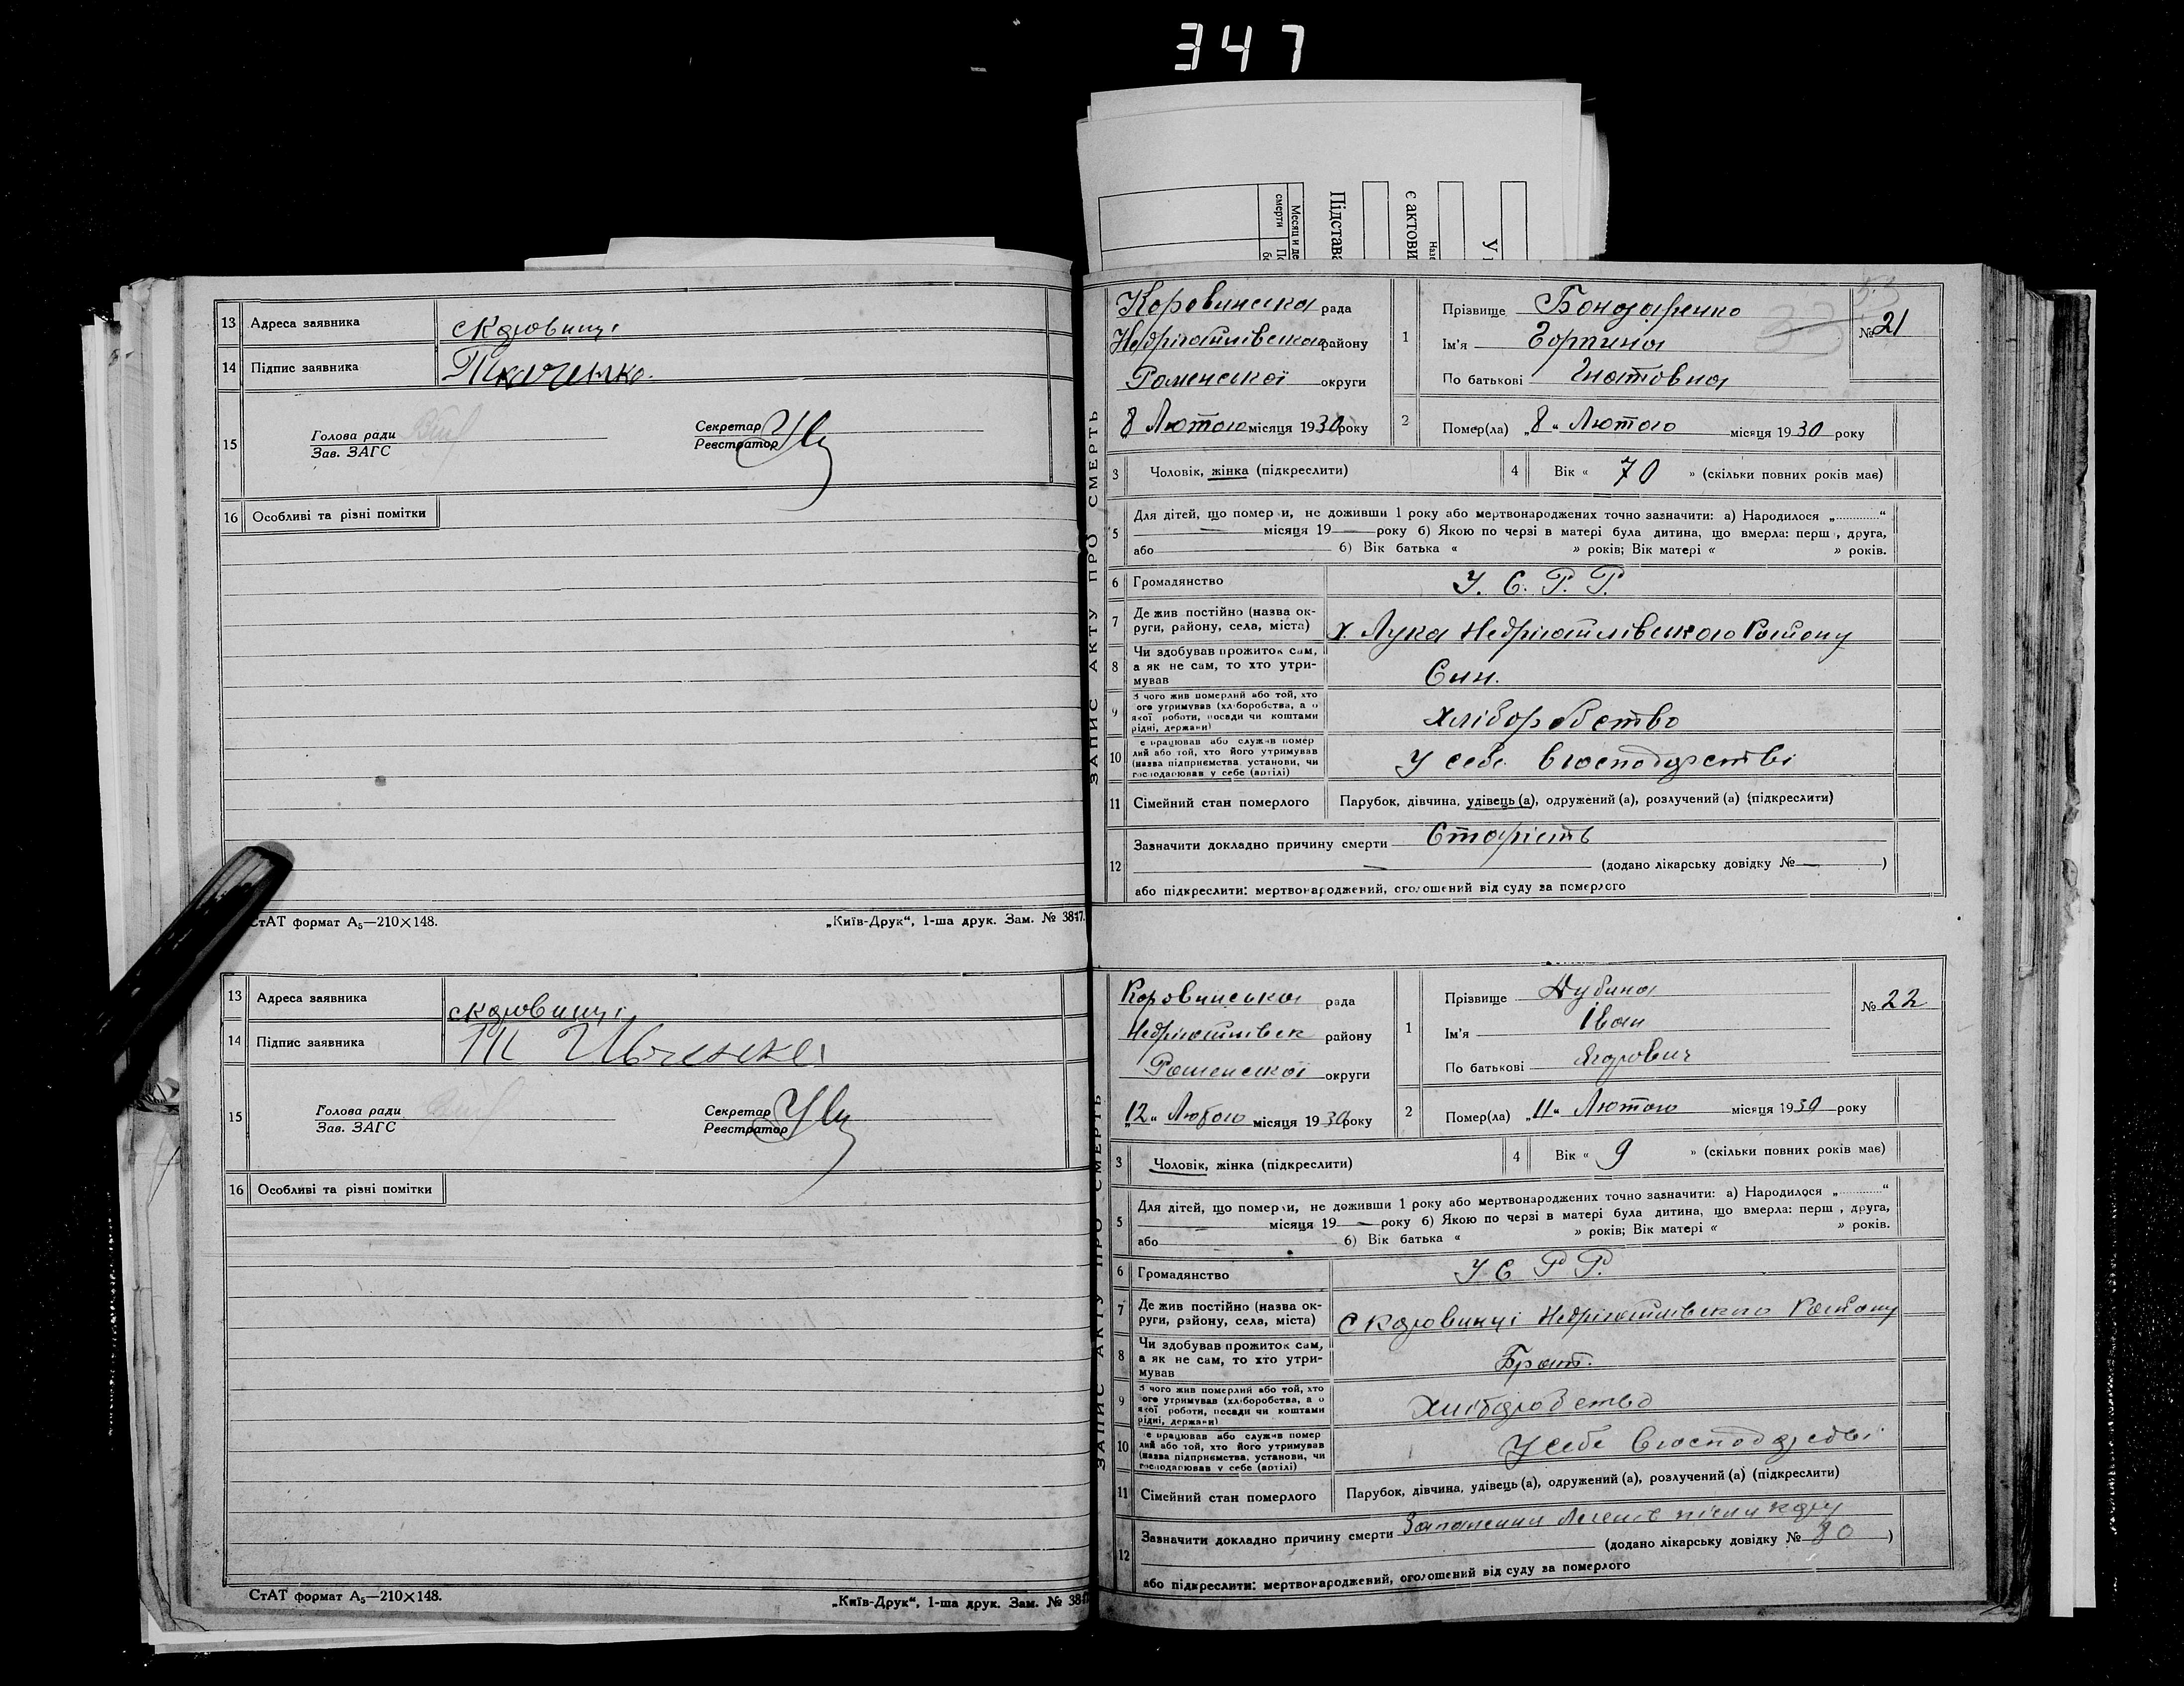 347
Місяц и де
смерти
Підстава
є актови
У
13 Адреса заявника с Коровинці
14 Підпис заявника Ткаченко.
15 Голова ради
Зав. ЗАГС
Секретар
Реєстратор
16 Особливі та різні помітки
СтАТ формат А5—210×148. „Київ-Друк“, 1-ша друк. Зам. № 3817.
13 Адреса заявника с Коровинці
14 Підпис заявника
15 Голова ради
Зав. ЗАГС
Секретар
Реєстратор
16 Особливі та різні помітки
СтАТ формат А5—210×148. „Київ-Друк“, 1-ша друк. Зам. № 381
ЗАПИС АКТУ ПРО СМЕРТЬ
Коровинська рада
Недрігайлівського району
Роменської округи
8 Лютого місяця 1930 року
1 Прізвище Бондаренко
Ім'я Горпина
По батькові Гнатовна
33
№ 21
2 Помер(ла) „8“ Лютого місяця 1930 року
3 Чоловік, жінка (підкреслити) 4 Вік « 70 » (скільки повних років має)
5 Для дітей, що помер и, не доживши 1 року або мертвонароджених точно зазначити: а) Народилося „............“
місяця 19 року б) Якою по черзі в матері була дитина, що вмерла: перш , друга,
або 6) Вік батька « » років; Вік матері « » років.
6 Громадянство У. С. Р. Р.
7 Де жив постійно (назва ок-
руги, району, села, міста) х Лука Недрігайлівського Району
8 Чи здобував прожиток сам,
а як не сам, то хто утри-
мував Син.
9 З чого жив померлий або той, хто
ого утримував (хліборобства, а о
якої роботи, посади чи коштами
рідні, держави) хліборобство
10 е працював або служив помер
лий або той, хто його утримував
(назва підприємства, установи, чи
господарював у себе (артілі) у себе в господарстві
11 Сімейний стан померлого Парубок, дівчина, удівець (а), одружений (а), розлучений (а) (підкреслити)
12 Зазначити докладно причину смерти Старість
(додано лікарську довідку № — )
або підкреслити: мертвонароджений, оголошений від суду за померлого
ЗАПИС АКТУ ПРО СМЕРТЬ
Коровинська рада
Недрігайлівськ району
Роменської округи
„12“ Лютого місяця 1930 року
1 Прізвище Дубина
Ім'я Іван
По батькові Ягорович
№ 22
2 Помер(ла) „11“ Лютого місяця 1930 року
3 Чоловік, жінка (підкреслити) 4 Вік « 9 » (скільки повних років має)
5 Для дітей, що помер и, не доживши 1 року або мертвонароджених точно зазначити: а) Народилося „............“
місяця 19 року б) Якою по черзі в матері була дитина, що вмерла: перш , друга,
або 6) Вік батька « » років; Вік матері « » років.
6 Громадянство У С Р Р.
7 Де жив постійно (назва ок-
руги, району, села, міста) с Коровинці Недрігайлівського Району
8 Чи здобував прожиток сам,
а як не сам, то хто утри-
мував Брат.
9 З чого жив померлий або той, хто
ого утримував (хліборобства, а о
якої роботи, посади чи коштами
рідні, держави) хліборобство
10 е працював або служив помер
лий або той, хто його утримував
(назва підприємства, установи, чи
господарював у себе (артілі) у себе в господарстві
11 Сімейний стан померлого Парубок, дівчина, удівець (а), одружений (а), розлучений (а) (підкреслити)
12 Зазначити докладно причину смерти Запалення Легенів після кору
(додано лікарську довідку № 80 )
або підкреслити: мертвонароджений, оголошений від суду за померлого